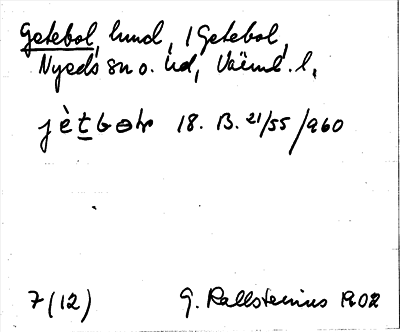 Getebol, lund, 1 Getebol,
Nyeds sn o. hd, Värml. l.
18. B. 21/55 /960
7 (12) G. Kallstenius 1902